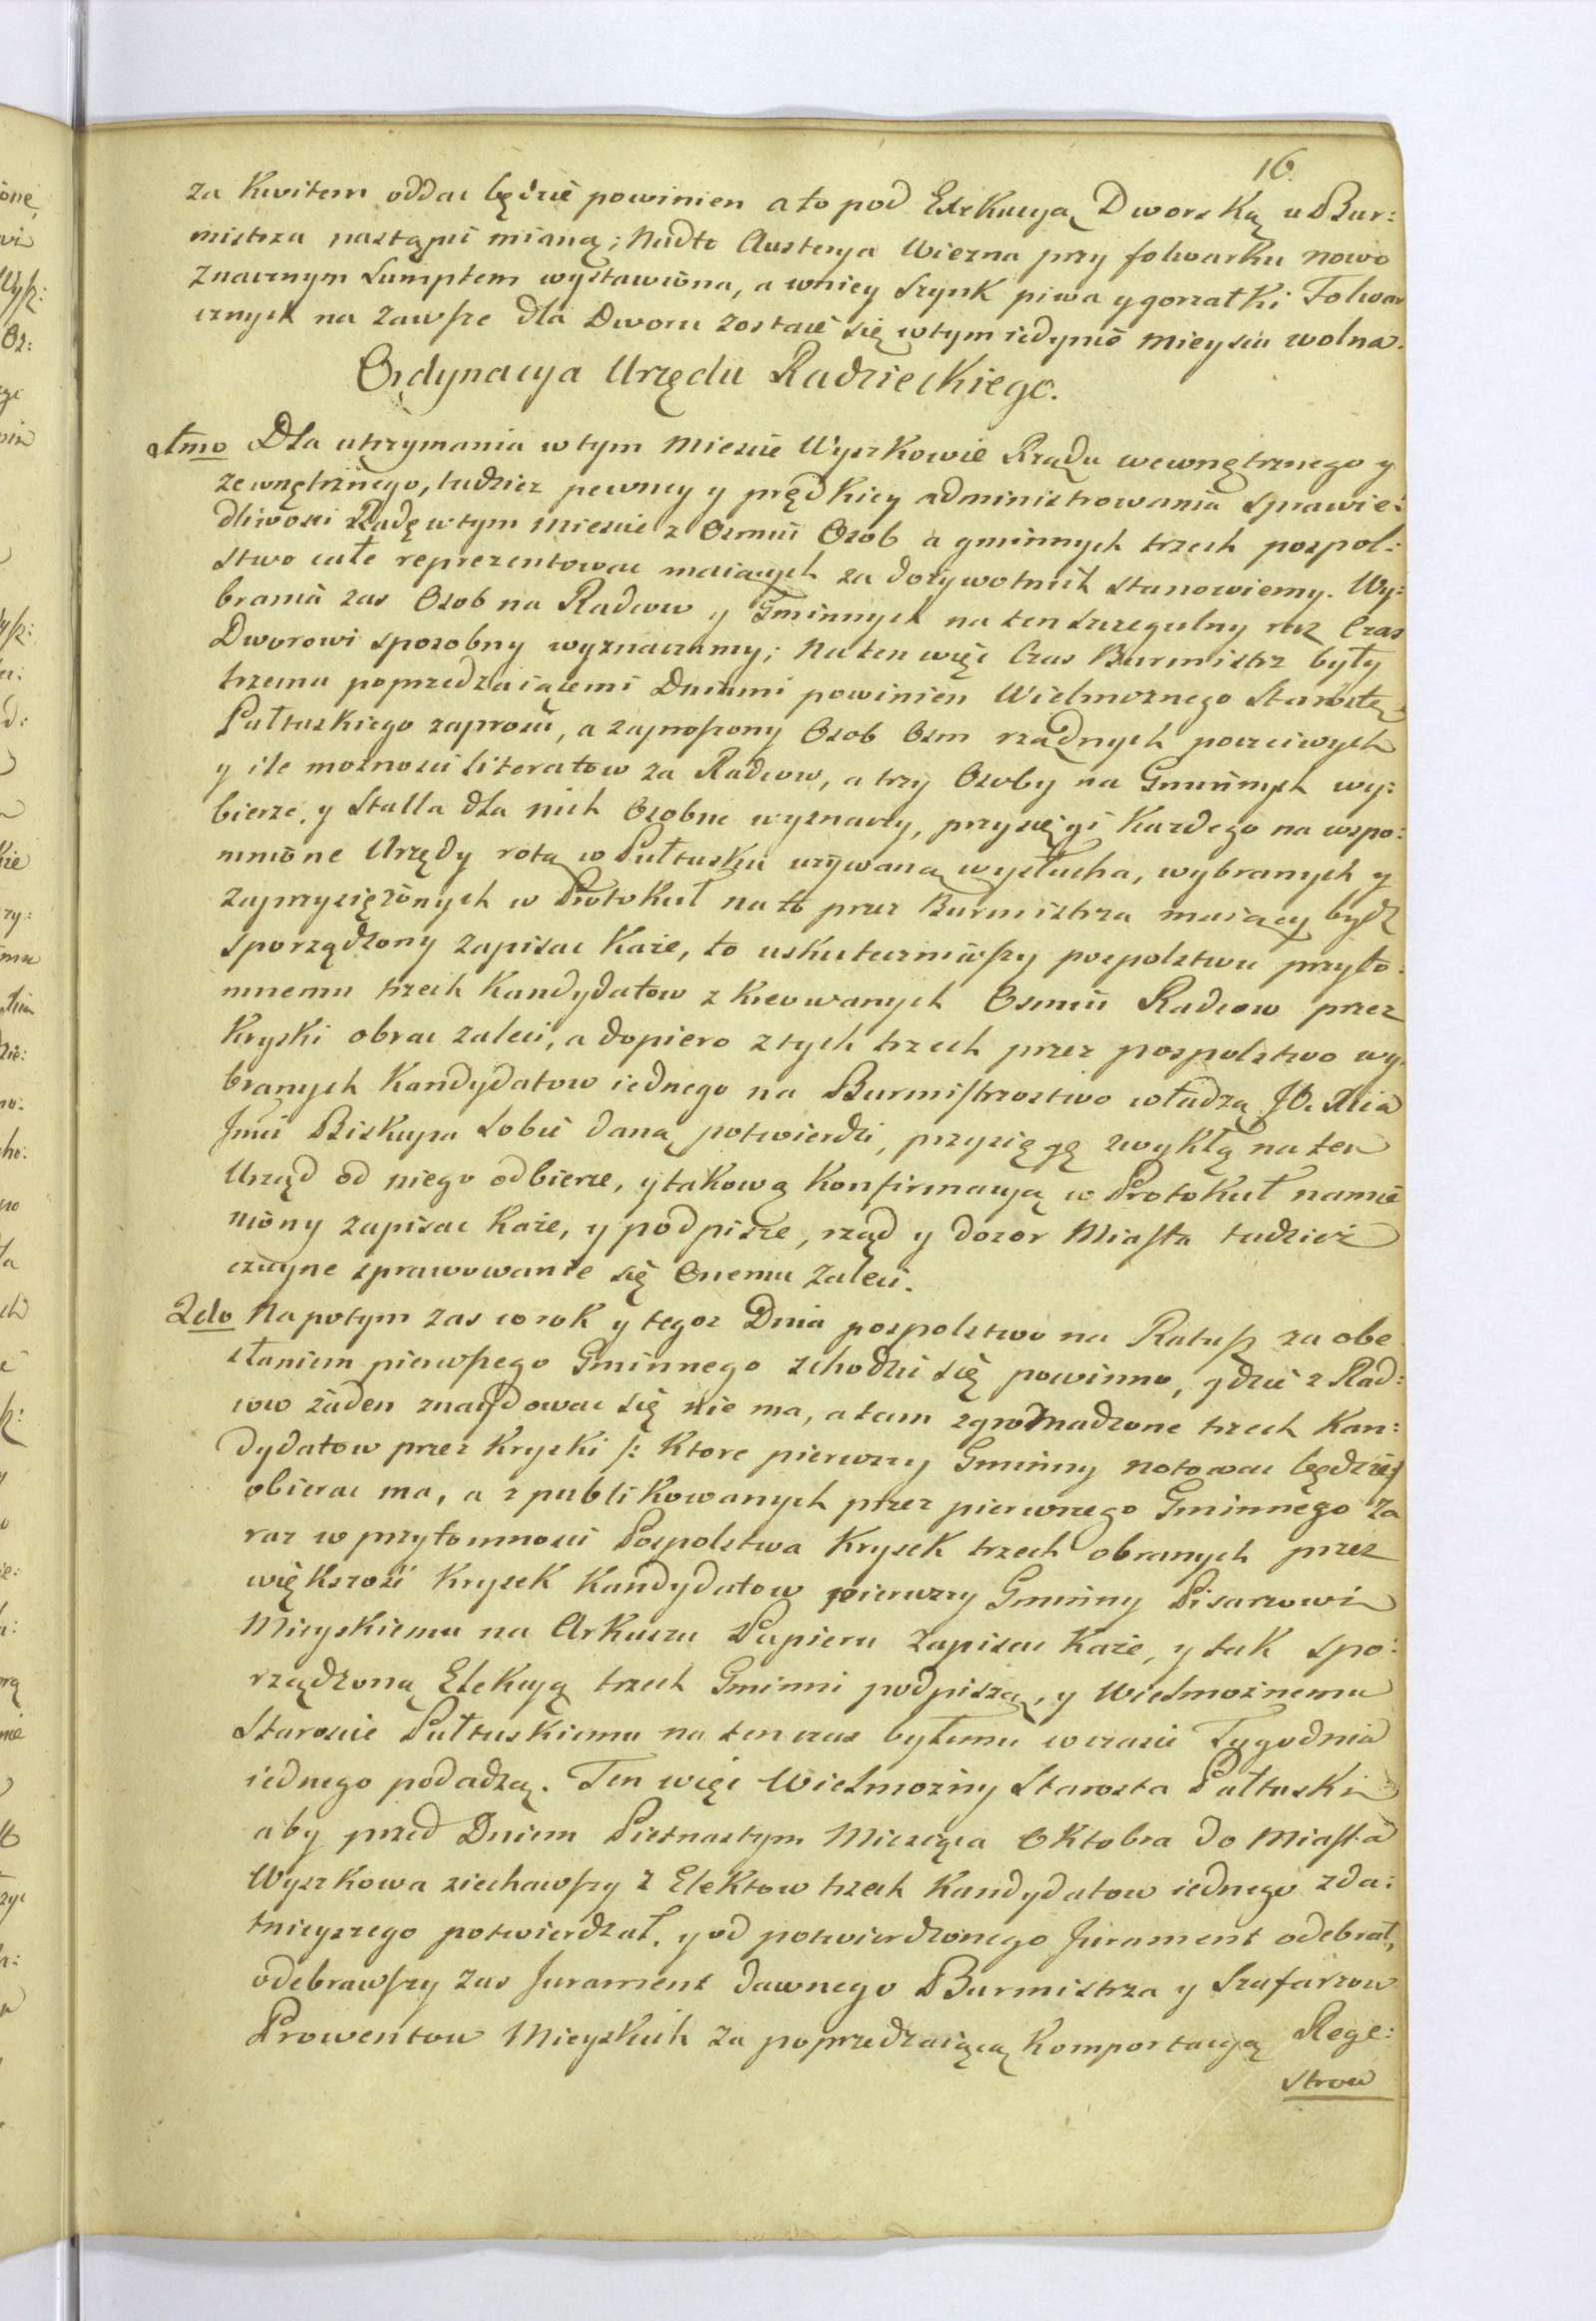 16.
za Kwitem oddac będzie powinien a to pod Exekucyą Dworską u Bur:
mistrza nastąpić mianą; Nadto Austerya Wiezna przy folwarku nowo
znacznym Sumptem wystawiona, a wniey Szynk piwa y gorzałki Folwar
cznych na zawsze dla Dworu zostaie się wtym iedynie mieyscu wolna.
Ordynacya Urzędu Radzieckiego.
1mo Dla utrzymania wtym Miescie Wyszkowie Rządu wewnętrznego y
zewnętrznego, tudziez pewney y prędkiey administrowania sprawie:
dliwosci Radę wtym Miescie z Osmiu Osob a gminnych trzech pospol:
stwo całe reprezentowac maiących za dożywotnich stanowiemy. Wy:
brania zas Osob na Radcow y Gminnych na ten szczegulny raz Czas
Dworowi sposobny wyznaczamy; Na ten więc Czas Burmistrz były
trzema poprzedzaiącemi Dniami powinien Wielmoznego Starostę
Pułtuskiego zaprosic, a zaproszony Osob Osm rządnych poczciwych
y ile moznosci literatow za Radcow, a trzy Osoby na Gminnych wy:
bierze, y Stalla dla nich Osobne wyznaczy, przysięgi Kazdego na wspo:
mnione Urzędy rotą w Pułtusku używaną wysłucha, wybranych y
zaprzysięzonych w Protokuł na to przez Burmistrza maiący bydz
sporządzony zapisac Kaze, to uskuteczniwszy pospolstwu przyto:
mnemu trzech Kandydatow z Kreowanych Osmiu Radcow przez
Kryski obrac zaleci, a dopiero z tych trzech przez pospolstwo wy:
branych Kandydatow iednego na Burmistrzostwo władzą JO. Xcia
Jmci Biskupa Sobie daną potwierdzi, przysięgę zwykłą na ten
Urząd od niego odbierze, y takową Konfirmacyą w Protokuł namie
niony zapisac Kaze, y podpisze, rząd y dozor Miasta tudziez
czuyne sprawowanie się Onemu zaleci.
2do Na potym zas co rok y tegoz Dnia pospolstwo na Ratusz za obe
słaniem pierwszego Gminnego schodzic się powinno, gdzie z Rad:
cow żaden znaydowac się nie ma, a tam zgromadzone trzech Kan:
dydatow przez Kryski /: Ktore pierwszy Gminny notowac będzie:/
obierac ma, a z publikowanych przez pierwszego Gminnego za
raz w przytomnosci Pospolstwa Krysek trzech obranych przez
większosc Krysek Kandydatow pierwszy Gminny Pisarzowi
Mieyskiemu na Arkuszu Papieru zapisac Kaze, y tak spo:
rządzoną Elekcyą trzech Gminni podpiszą, y Wielmoznemu
Staroscie Pułtuskiemu na ten czas byłemu w czasie Tygodnia
iednego podadzą. Ten więc Wielmozny Starosta Pułtuski
aby przed Dniem Pietnastym Miesiąca Oktobra do Miasta
Wyszkowa ziechawszy z Elektow trzech Kandydatow iednego zda:
tnieyszego potwierdzał, y od potwierdzonego Jurament odebrał,
odebrawszy zas Jurament dawnego Burmistrza y Szafarzow
Prowentow Mieyskich za poprzedzaiącą Komportacyą Rege:
strow